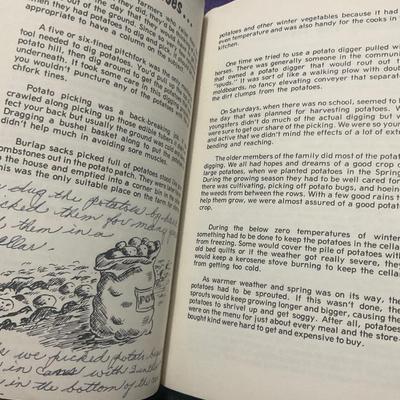 oes ...
farmers, who
out of the ground. Since
when they had potatoes to dig and pick
appropriate to have a column on this
A five or six-tined pitchfork was the only
tool needed to dig potatoes. You'd
potato hill, then dig
underneath. It took some care in this
you wouldn't puncture any of the potatoes
chfork tines.
Potato picking was a back-breaking
crawled along picking up those edible
fect your back but usually the ground
Dragging a bushel basket along to put
didn't help much in avoiding sore muscles.
Burlap sacks picked full of potatoes stood like
ombstones out in the potato patch. They were
o the house and emptied into a corner bin in the
his was the only suitable place on the farm
dug the potatoes by hand
icked them for many
d them in a
ellar.
POTA
we picked potato bugs
in cans with
in the bottom of the
potatoes and other winter vegetables because it had
even temperature and was also handy for the cooks in
kitchen.
One time we tried to use a potato digger pulled
horses. There was generally someone in the commun
that owned a potato digger that would rout out
"spuds." It was sort of like a walking plow with doubl
moldboards, no fancy elevating conveyer that separate
the dirt clumps from the potatoes.
On Saturdays, when there was no school, seemed to
the day that was planned for harvesting potatoes. W
youngsters didn't do much of the actual digging but w
were sure to get our share of the picking. We were so young
and active that we didn't mind the effects of a lot of extr
bending and reaching.
The older members of the family did most of the potato
digging. We all had hopes and dreams of a good crop o
large potatoes, when we planted potatoes in the Spring
During the growing season they had to be well cared for
there was cultivating, picking off potato bugs, and hoein
the weeds from between the rows. With a few good rains
help them grow, we were almost assured of a good potato
crop.
During the below zero temperatures of winter
something had to be done to keep the potatoes in the cella
from freezing. Some would cover the pile of potatoes with
old bed quilts or if the weather got really severe, they
would keep a kerosene stove burning to keep the cella
from getting too cold.
As warmer weather and spring was on its way, the
potatoes had to be sprouted. If this wasn't done, the
sprouts would keep growing longer and bigger, causing the
potatoes to shrivel up and get soggy. After all, potatoes
were on the menu for just about every meal and the store-
bought kind were hard to get and expensive to buy.